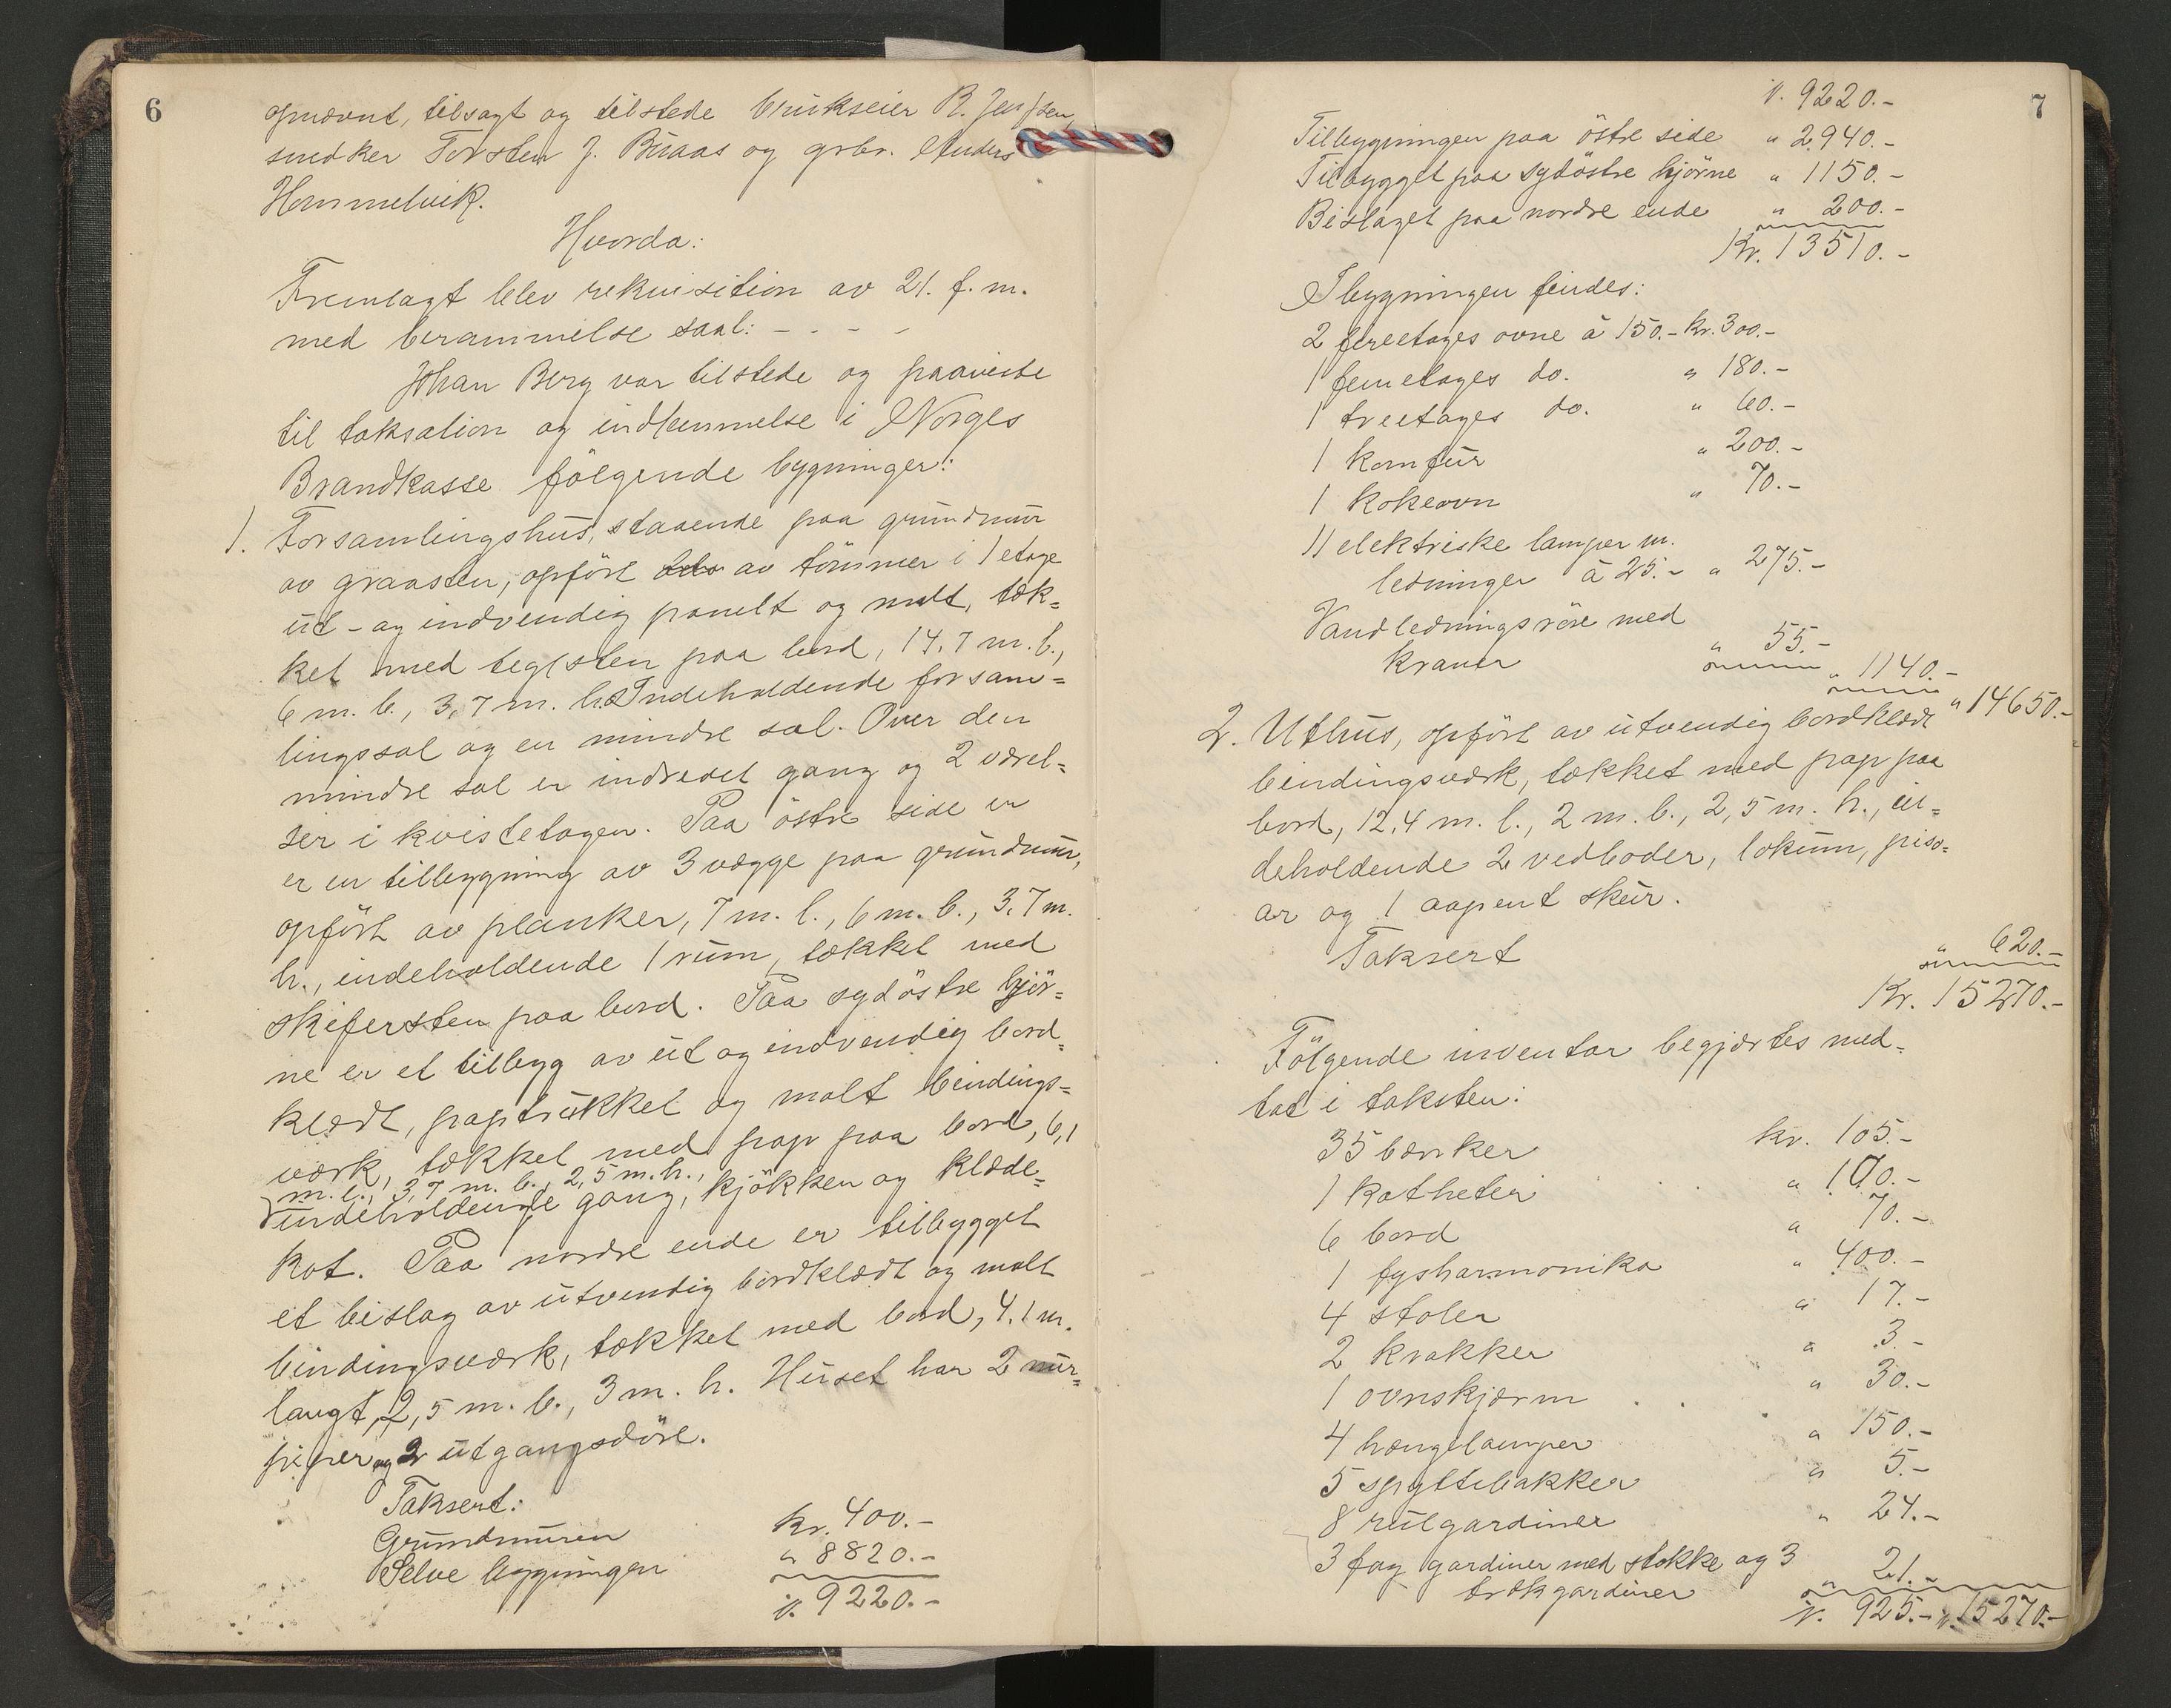 6
opnævnt, tilsagt og tilstede brukseier R. Jenssen,
snedker Torsten J. Buaas og grbr. Anders
Hommelvik.
Hvorda:
Fremlagt blev rekvisition av 21. f. m.
med berammelse saal: - - - -
Johan Berg var tilstede og paaviste
til taksation og indlemmelse i Norges
Brandkasse følgende bygninger:
1. Forsamlingshus, staaende paa grundmur
av graasten, opført av tømmer i 1 etage
ut- og indvendig panelt og malt, tæk=
ket med teglsten paa bord, 14,7 m. l.,
6 m. b., 3,7 m. h. Indeholdende forsam=
lingssal og en mindre sal. Over den
mindre sal er indredet gang og 2 værel=
ser i kvistetagen. Paa östre side er
er en tilbygning av 3 vægge paa grundmur,
opfört av planker, 7 m. l., 6 m. b., 3,7 m.
h., indeholdende 1 rum, tækket med
skifersten paa bord. Paa sydöstre hjör=
ne er et tilbyg av ut og indvendig bord=
klædt, paptrukket og malt bindings=
værk, tækket med pap paa bord, 6,1
m. l., 3,7 m. b., 2,5 m. h.,
indeholdende gang, kjökken og klæde=
kot. Paa nordre ende er tilbygget
et bislag av utvendig bordklædt og malt
bindingsverk, tækket med bord, 4,1 m.
langt, 2,5 m. b., 3 m. h. Huset har 2 mur=
piper og 2 utgangsdöre.
Taksert:
Grundmuren kr. 400.-
Selve bygningen " 8820.-
tr. 9220.-
7
tr. 9220.-
Tilbygningen paa östre side " 2940.-
Tilbygget paa sydöstre hjörne " 1150.-
Bislaget paa nordre ende " 200.-
Kr. 13510.-
I bygningen findes:
2 fireetages ovne á 150.- kr. 300.-
1 femetages do. " 180.-
1 treetages do. " 60.-
1 komfur " 200.-
1 kokeovn " 70.-
11 elektriske lamper m.
ledninger á 25.- " 275.-
Vandledningsrör med
kraner " 55.-
" 1140.-
" 14650.-
2. Uthus, opfört av utvendig bordklædt
bindingsværk, tækket med pap paa
bord, 12,4 m. l., 2 m. b., 2,5 m. h., in=
deholdende 2 vedboder, lokum, piso=
ar og 1 aapent skur.
Taksert " 620.-
Kr. 15270.-
Fölgende inventar begjærtes med=
tat i taksten:
35 bænker kr. 105.-
1 katheter " 100.-
6 bord " 70.-
1 fysharmonika " 400.-
4 stoler " 17.-
2 krakker " 3.-
1 ovnskjærm " 30.-
4 hængelamper " 150.-
5 spyttebakker " 5.-
8 rulgardiner " 24.-
3 fag gardiner med stokke og 3
trækgardiner " 21.-
tr. 925.- tr. 15270.-